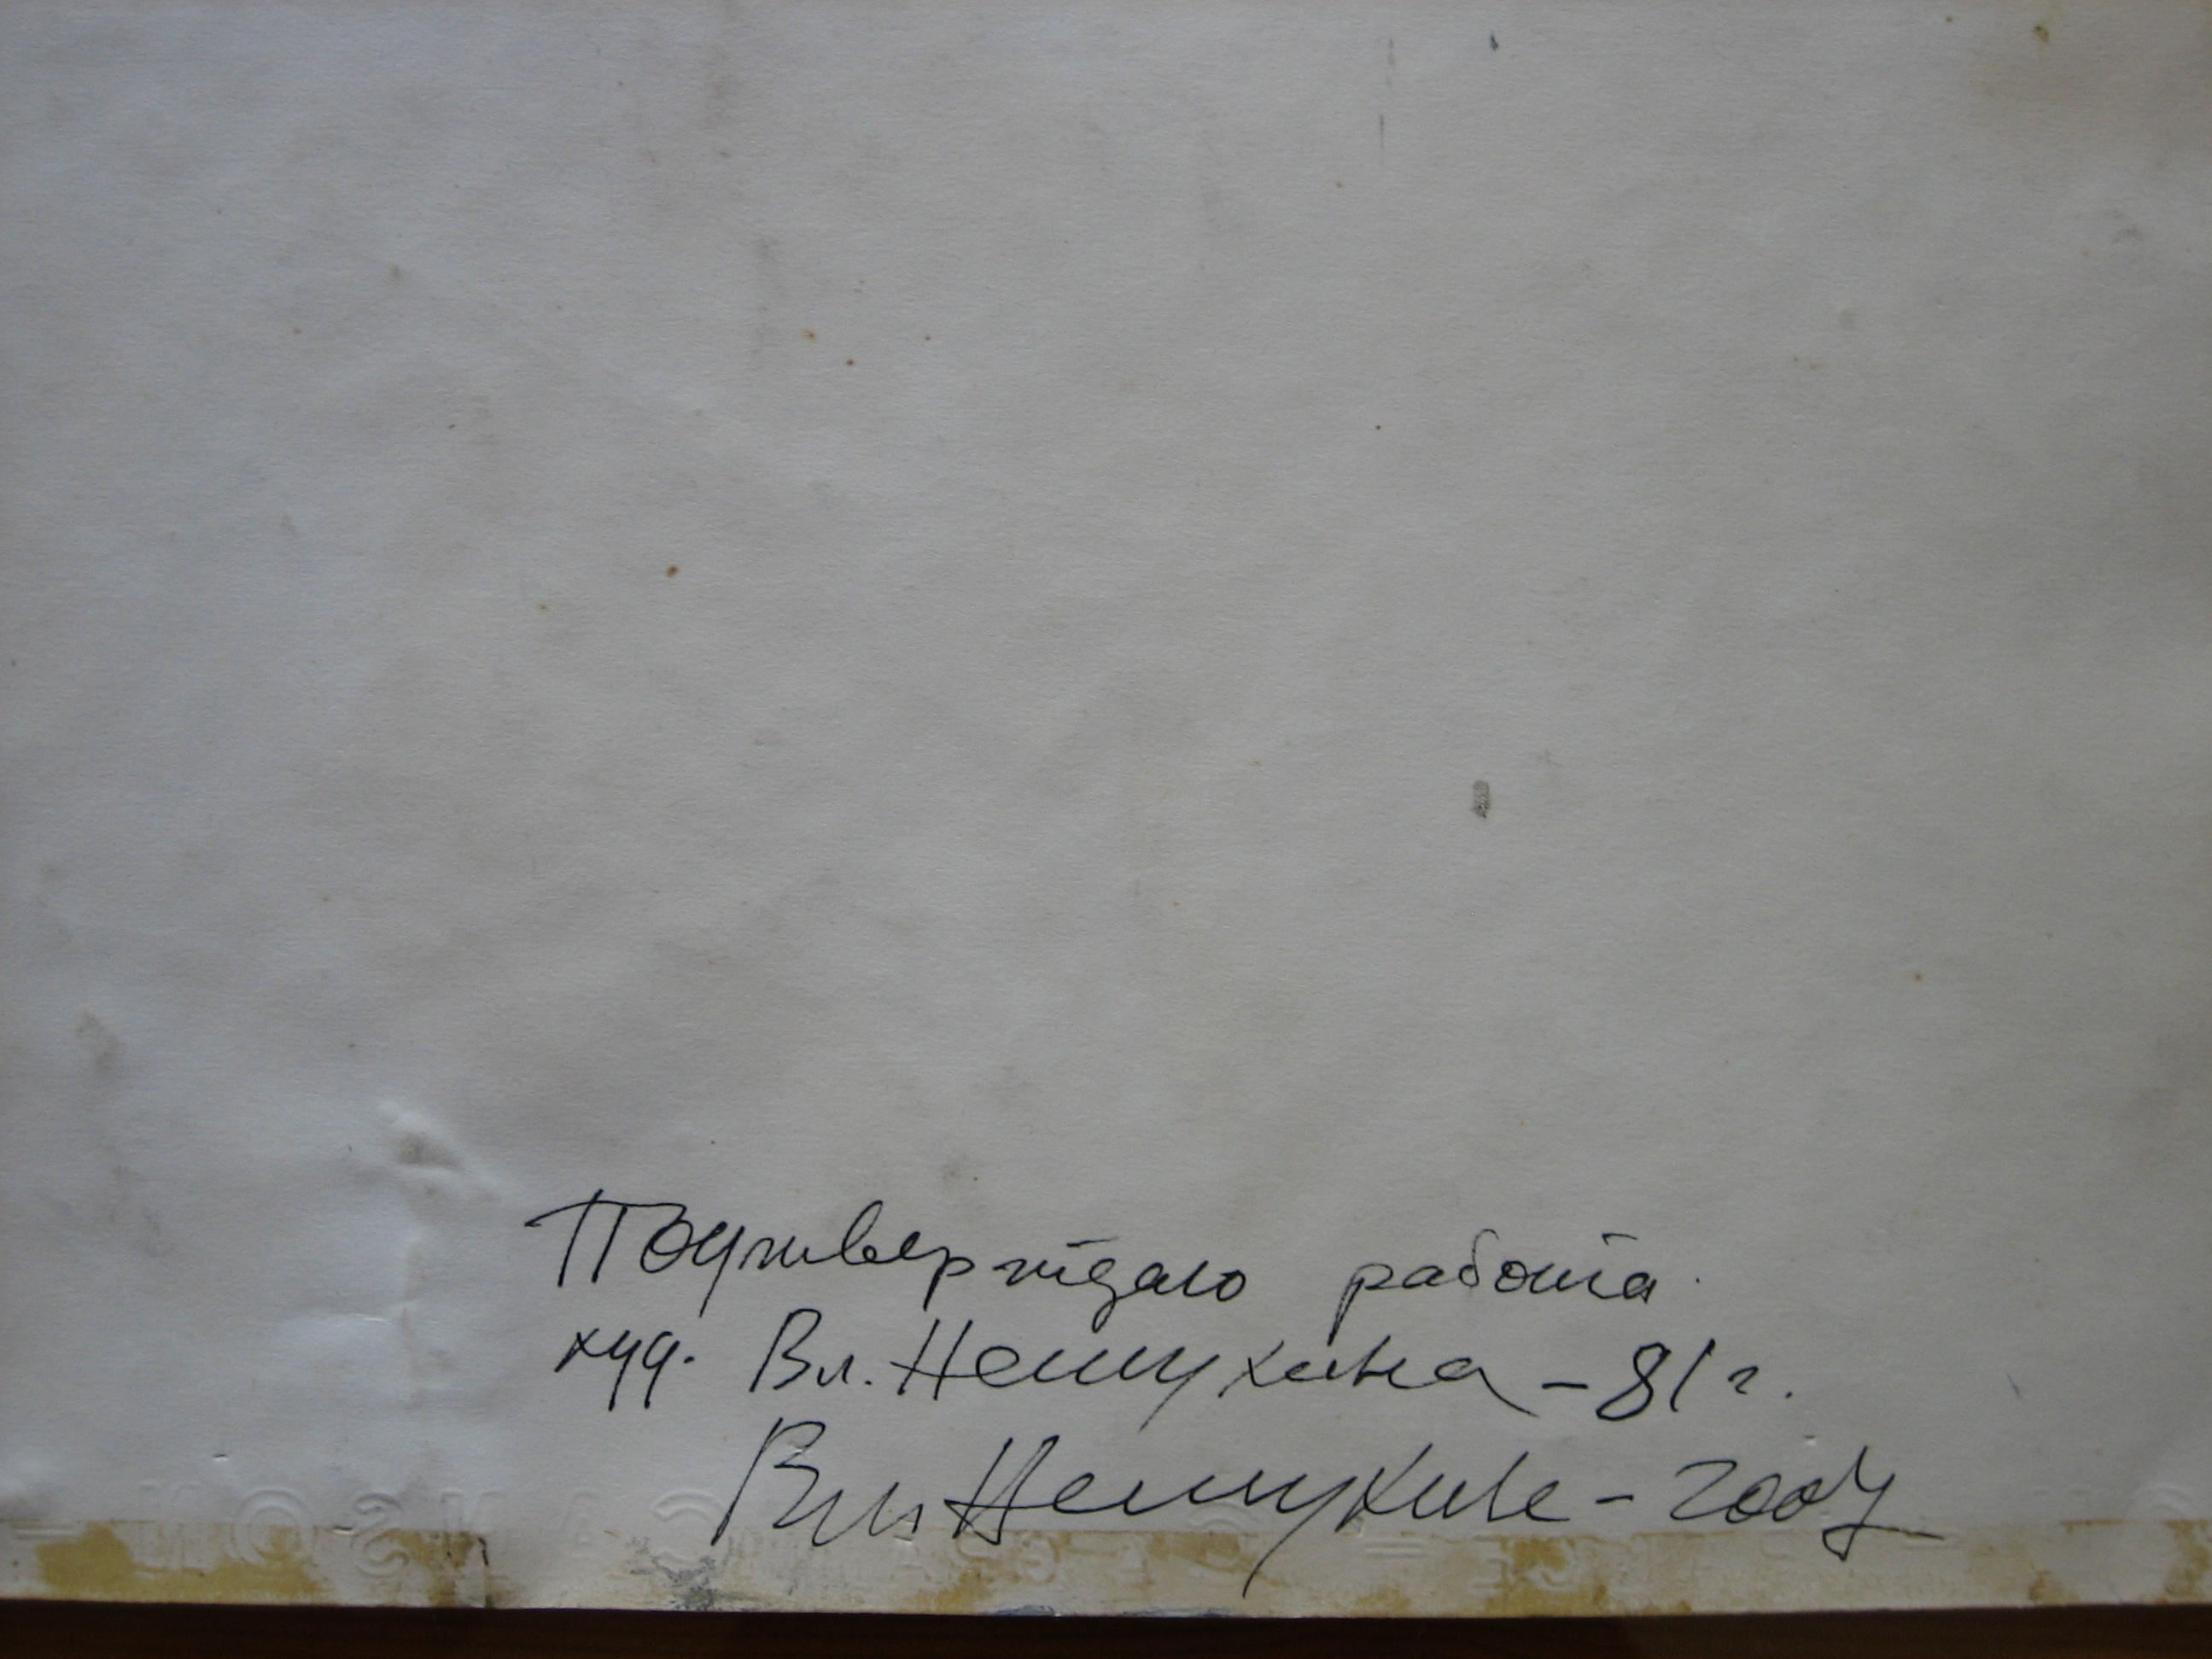 Подтверждаю работа
худ. Вл. Немухина – 81 г.
Вл. Немухин – 2007
CANSON